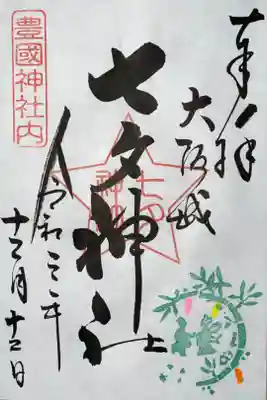 奉拝
大阪城
七夕神社
豊國神社内
令和三年
十二月十二日